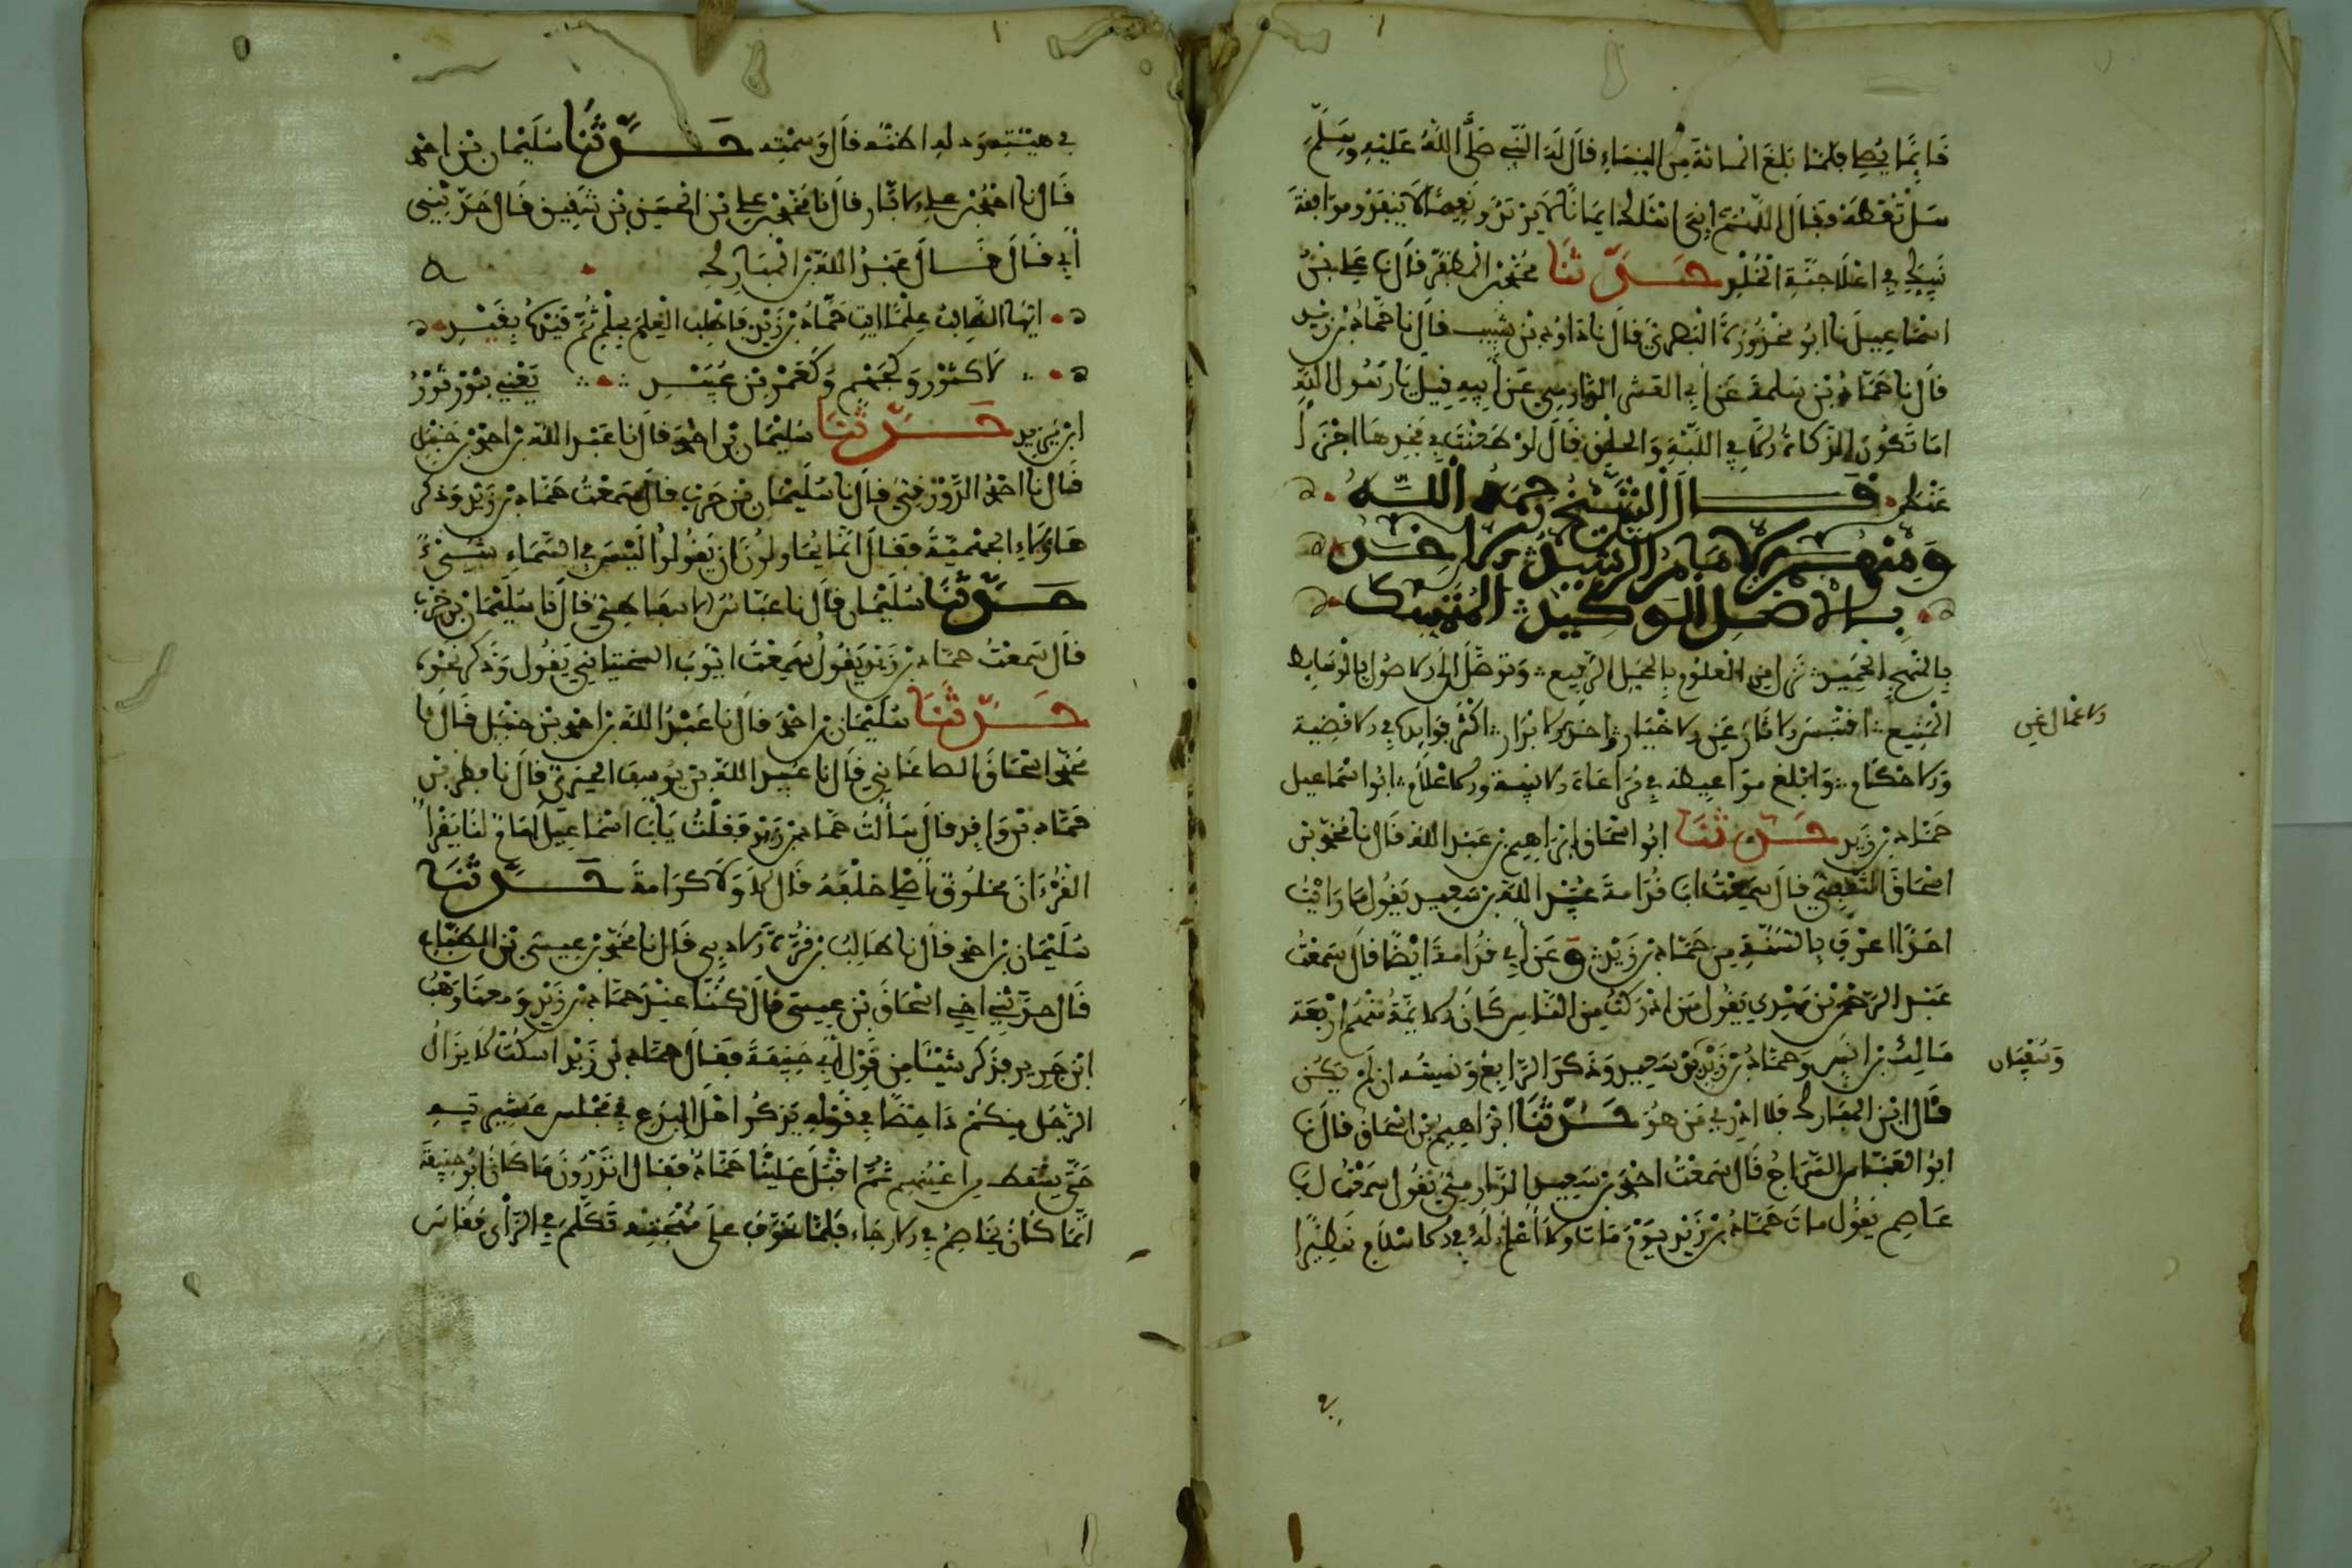 قائما يصلي فلما بلغ المائة من النساء قال له النبي صلى الله عليه وسلم
سل تعطه فقال اللهم إني اسئلك ايمانا لا يرتد ونعيما لا ينفد ومرافقة
نبيك في اعلا جنة الخلد حدثنا محمد بن المظفر قال نا علي بن
اسماعيل نا ابو البصري قال نا داود بن شبيب قال نا حماد بن زيد
قال نا حماد بن سلمة عن أبي العشراء الدارمي عن أبيه قيل يا رسول الله
اما تكون الزكاة إلا في اللبة والحلق قال لو طعنت في فخذها اجزأ
عنك قال الشيخ رحمه الله
ومنهم الامام الرشيد الآخذ
بالاصل الوكيد المتمسك
بالمنهج الحميد نزل من العلوم بالمحل الرفيع وتوصل إلى الاصول بالوسايط
المنيع اقتبس الآثار عن الاخيار وأخذ عن الابرار أكثر فوايده في الاقضية
والاحكام وابلغ مواعظه في مراعاة الابنية والاعلام ابو اسماعيل
حماد بن زيد حدثنا ابو اسحاق ابراهيم بن عبد الله قال نا محمد بن
اسحاق الثقفي قال سمعت ابا قدامة عبيد الله بن سعيد يقول ما رايت
احدا اعرف بالسنة من حماد بن زيد وعن أبي قدامة ايضا قال سمعت
عبد الرحمن بن مهدي يقول من ادركت من الناس كان الايمة منهم اربعة
مالك بن انس وحماد بن زيد بن سعيد وذكر الرابع ونسيته ان لم يكن
قال ابن المبارك فلا ادري من هو حدثنا ابراهيم بن اسحاق قال نا
ابو العباس السراج قال سمعت احمد بن سعيد الدارمي يقول سمعت ابا
عاصم يقول مات حماد بن زيد يوم مات ولا أعلم له في الاسلام نظيرا
والاعمال عن
وسفيان
في
في هيئته ودله اظنه قال وسمته حدثنا سليمان بن احمد
قال نا احمد بن علي الابار قال نا محمد بن علي بن الحسن بن شقيق قال حدثني
أبي قال قال عبد الله بن المبارك
ايها الطالب علما ايت حماد بن زيد فاطلب العلم بحلم ثم قيده بقيد
لا كثور وكجهم وكعمرو بن عبيد يعني بثور ثور
ابن يزيد حدثنا سليمان بن احمد قال نا عبد الله بن احمد بن حنبل
قال نا احمد الدورقي قال نا سليمان بن حرب قال سمعت حماد بن زيد وذكر
هاؤلاء الجهمية فقال انما يحاولون ان يقولوا ليس في السماء شيء
حدثنا سليمان قال نا عباس الاسفاطي قال نا سليمان بن حرب
قال سمعت حماد بن زيد يقول سمعت ايوب السختياني يقول وذكر نحوه
حدثنا سليمان بن احمد قال نا عبد الله بن احمد بن حنبل قال نا
محمد بن اسحاق الصاغاني قال نا عبيد الله بن يوسف الجبيري قال نا فطر بن
حماد بن واقد قال سألت حماد بن زيد فقلت يا أبا اسماعيل امام لنا يقرأ
القرءان مخلوق أصلي خلفه قال لا ولا كرامة حدثنا
سليمان بن احمد قال نا طالب بن قرة الاذني قال نا محمد بن عيسى بن الطباع
قال حدثني اخي اسحاق بن عيسى قال كنا عند حماد بن زيد ومعنا وهب
ابن جرير فذكر شيئا من قول أبي حنيفة فقال حماد بن زيد اسكت لا يزال
الرجل منكم داحضا في قوله يذكر اهل البدع في مجلس عشيرته
حتى يسقط من اعينهم ثم اقبل علينا حماد فقال اتدرون ما كان ابو حنيفة
انما كان يخاصم في الارجاء فلما تخوف على مهجته تكلم في الرأي فقاس